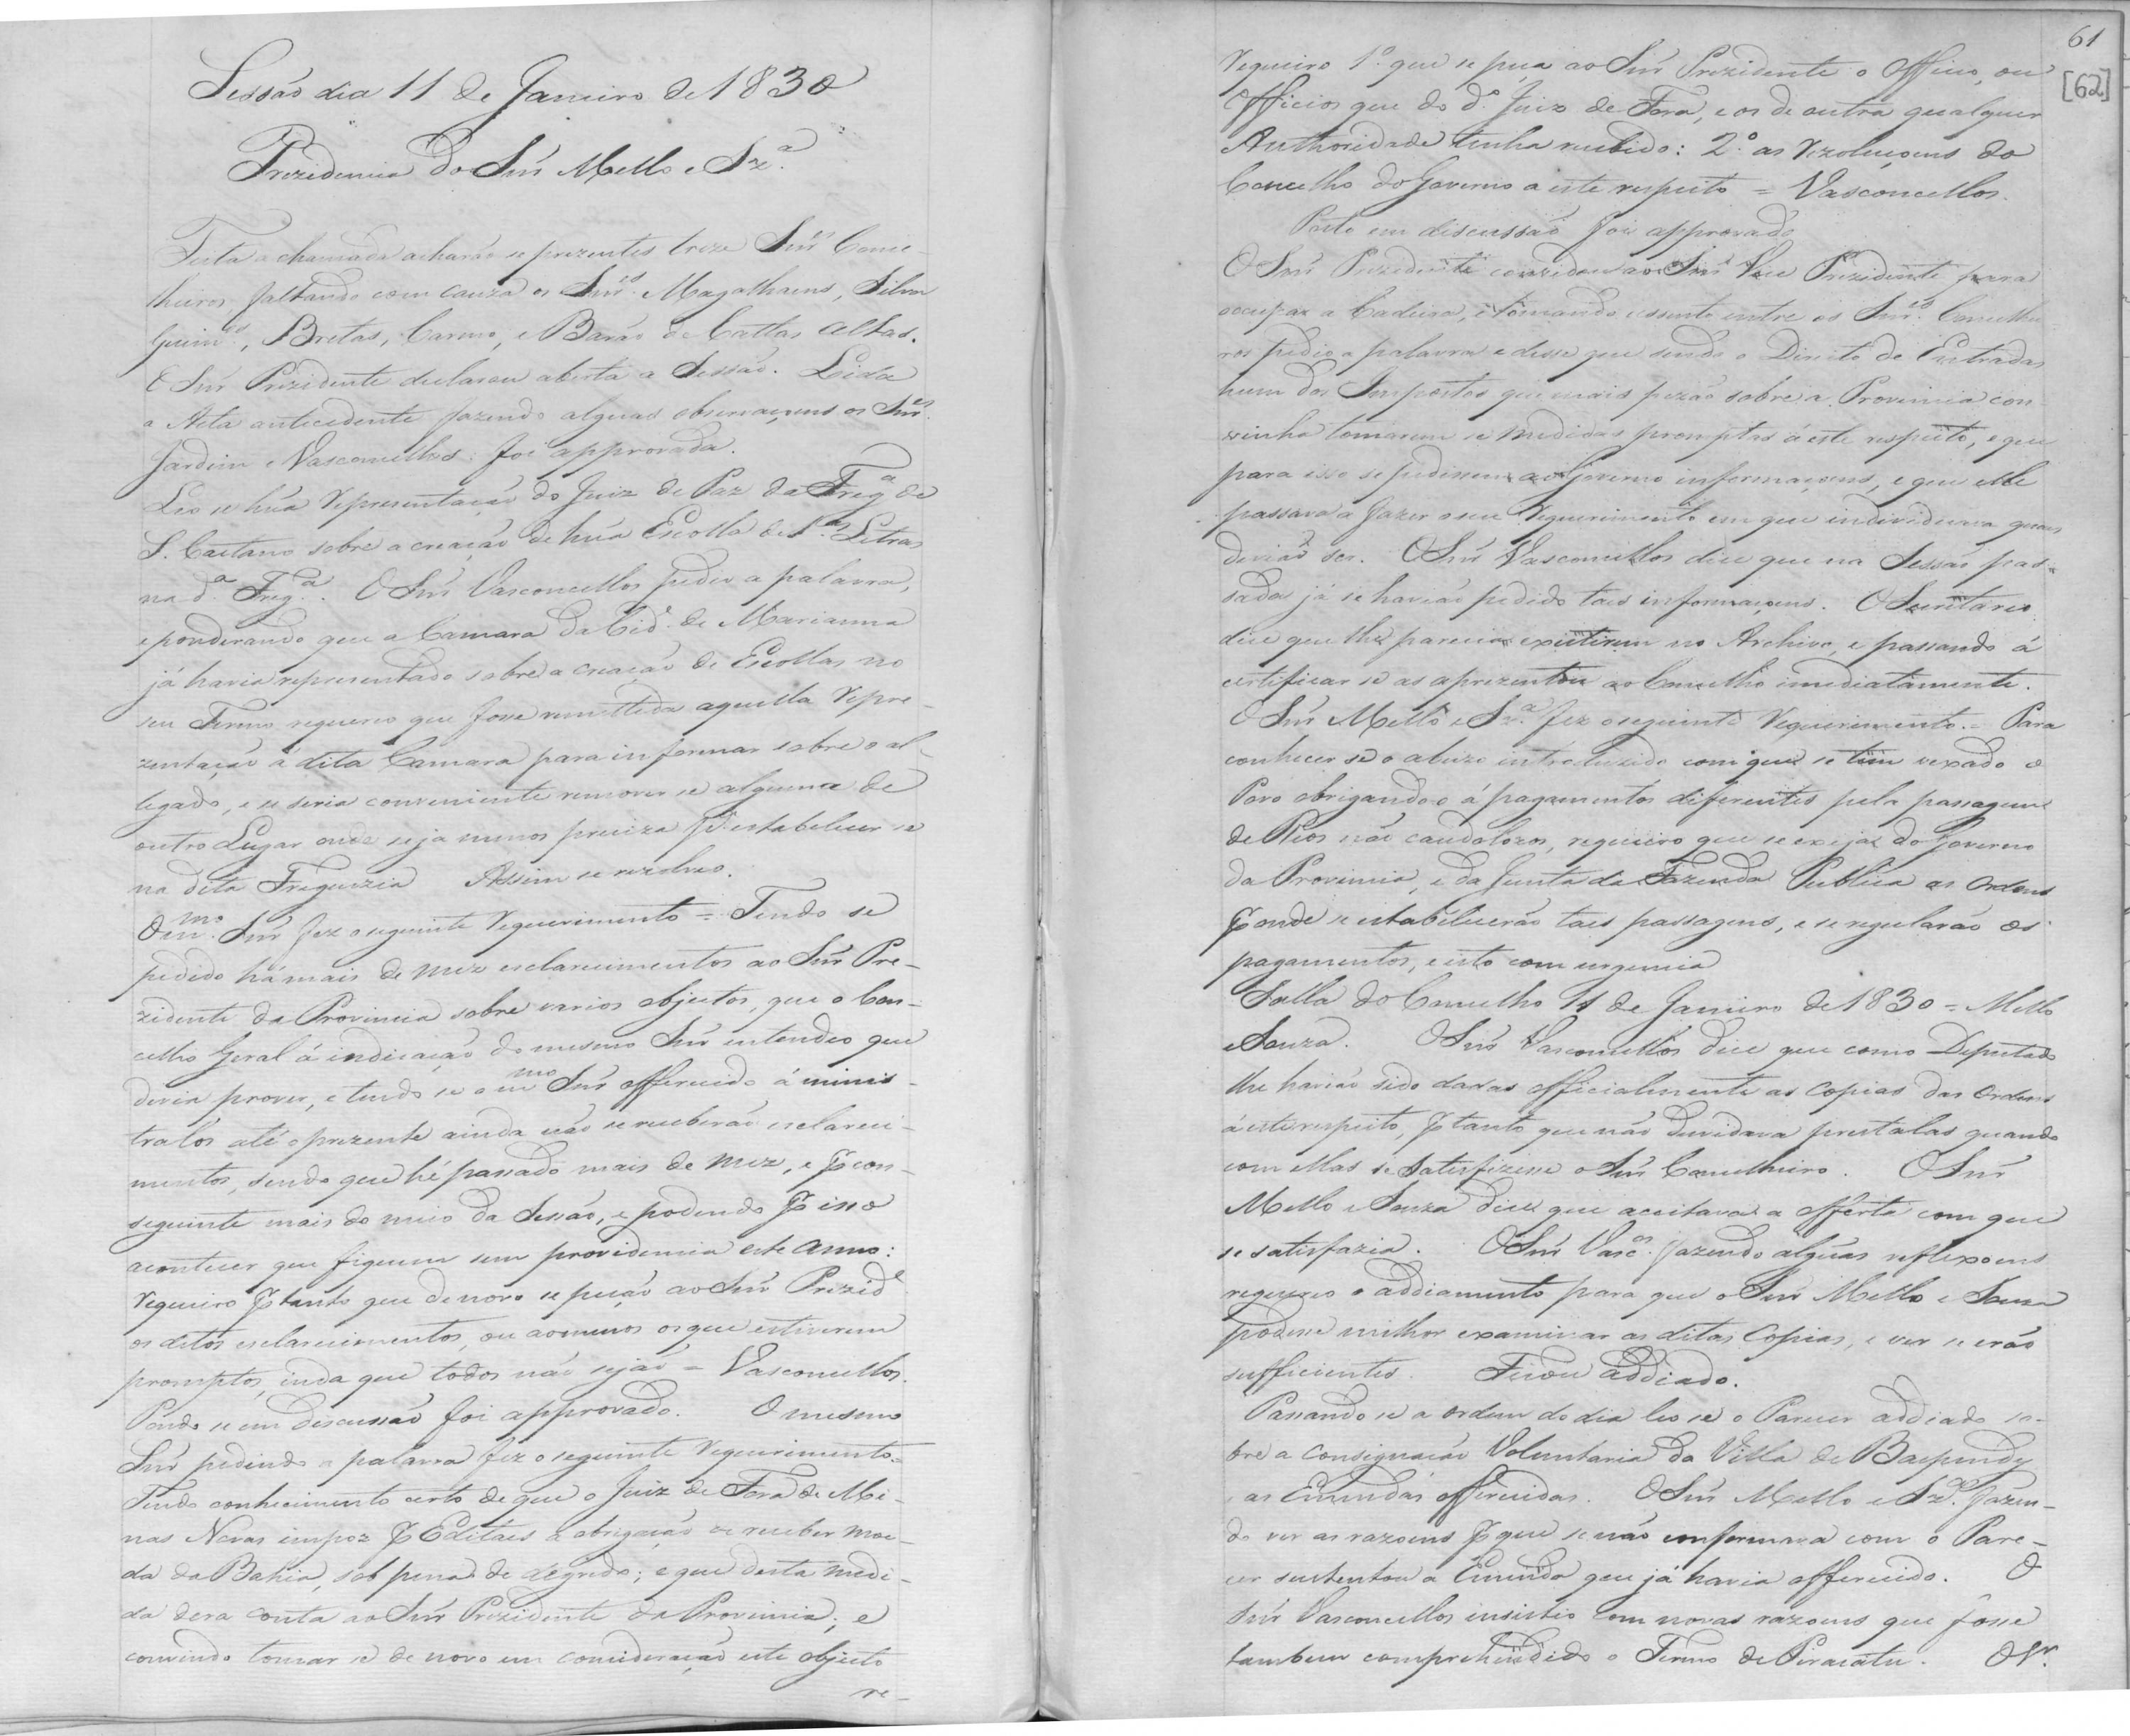 Sessão dia 11 de Janeiro de 1830
Prezidencia do Snr̃ Mello e Sz.ª
Feita a chamada acharão se prezentes treze Snr̃s Conse-
lheiros faltando com cauza os Snr̃es. Magalhaens, Silva
Guim.es, Bretas, Carmo, e Barão de Cattas Altas.
O Snr̃ Prezidente declarou aberta a Sessão. Lida
a Acta antecedente fazendo alguas observaçoens os Snr̃es.
Jardim e Vasconcellos foi approvada.
Leo se hũa Reprezentação do Juiz de Paz da Freg.ª de
S. Caetano sobre a creação de hũa Escolla de 1.as Letras
na d.ª Freg.ª. O Snr̃ Vasconcellos pedio a palavra,
e ponderando que a Camara da Cid.e de Marianna
já havia representado sobre a creação de Escollas no
seu Termo requereo que fosse remettida aquella Repre-
zentação á dita Camara para informar sobre o al-
legado, e se seria conveniente remover se alguma de
outro Lugar onde seja menos preciza pª estabelecer se
na dita Freguezia Assim se rezolveo.
O m.mo Snr̃ fez o seguinte Requerimento = Tendo se
pedido há mais de mez esclarecimentos ao Snr̃ Pre-
zidente da Provincia sobre varios objectos, que o Con-
celho Geral á indicação do mesmo Snr̃ entendeo que
devia prover, e tendo se o m.mo Snr̃ offerecido á minis-
tralos até o prezente ainda não se receberão esclareci-
mentos, sendo que hé passado mais de mez, e p̱ con-
seguinte mais do meio da Sessão, e podendo p̱ isso
acontecer que fiquem sem providencia este anno:
Requeiro p̱ tanto que de novo se peção ao Snr̃ Prezid.e
os ditos esclarecimentos, ou ao menos os que estiverem
promptos, inda que todos não sejão = Vasconcellos.
Pondo se em discussão foi approvado. O mesmo
Snr̃ pedindo a palavra fez o seguinte Requerimento =
Tendo conhecimento certo de que o Juiz de Fora de Mi-
nas Novas impoz p̱ Editaes a obrigação de receber moe-
da da Bahia, sob pena de degredo; e que desta medi-
da dera conta ao Snr̃ Prezidente da Provincia; e
convindo tomar se de novo em consideração este objecto
re-
61
[62]
Requeiro 1.º que se peça ao Snr̃ Prezidente o Officio, ou
Officios que do d.º Juiz de Fora, e os de outra qualquer
Authoridade tenha recebido: 2.º as Rezoluçoens do
Concelho do Governo a este respeito = Vasconcellos.
Posto em discussão foi approvado
O Snr̃ Prezidente convidou ao Snr̃ Vice Prezidente para
occupar a Cadeira, e tomando assento entre os Snr̃es. Conselhei-
ros pedio a palavra e disse que sendo o Direito de Entradas
hum dos Impostos que mais pezão sobre a Provincia con-
vinha tomarem se medidas promptas á este respeito, e que
para isso se pedissem ao Governo informaçoens, e que elle
passava a fazer o seu Requerimento em que individuava quaes
devião ser. O Snr̃ Vasconcellos dice que na Sessão pas-
sada já se havião pedido taes informaçoens. O Secretario
dice que lhe parecia existirem no Archivo, e passando á
certificar se as aprezentou ao Conselho imediatamente.
O Snr̃ Mello e Sz.ª fez o seguinte Requerimento. = Para
conhecer se o abuzo introduzido com que se tem vexado o
Povo obrigando-o á pagamentos diferentes pela passagem
de Rios não caudalozos, requeiro que se exija do Governo
da Provincia, e da Junta da Fazenda Publica as Ordens
p̱ onde se estabelecerão taes passagens, e se regularão os
pagamentos, e isto com urgencia
Salla do Concelho 11 de Janeiro de 1830 = Mello
e Souza. O Snr̃ Vasconcellos dice que como Deputado
lhe havião sido dadas officialmente as copias das Ordens
á este respeito, p̱ tanto que não duvidava prestalas quando
com ellas se satisfizesse o Snr̃ Conselheiro. O Snr̃
Mello e Souza dice que aceitava a offerta com que
se satisfazia. O Snr̃ Vasc.os fazendo algũas reflexoens
requereo o addiamento para que o Snr̃ Mello e Souza
podesse milhor examinar as ditas Copias, e ver se erão
sufficientes. Ficou addiado.
Passando se a ordem do dia leo se o Parecer addiado so-
bre a consignação Voluntaria da Villa de Baependy
e as Emendas offerecidas. O Snr̃ Mello e Sz.ª fazen-
do ver as razoens p̱ que se não conformava com o Pare-
cer sustentou a Emenda que já havia offerecido. O
Snr̃ Vasconcellos insistio com novas razoens que fosse
tambem comprehendido o Termo de Piracatu. O Sr.